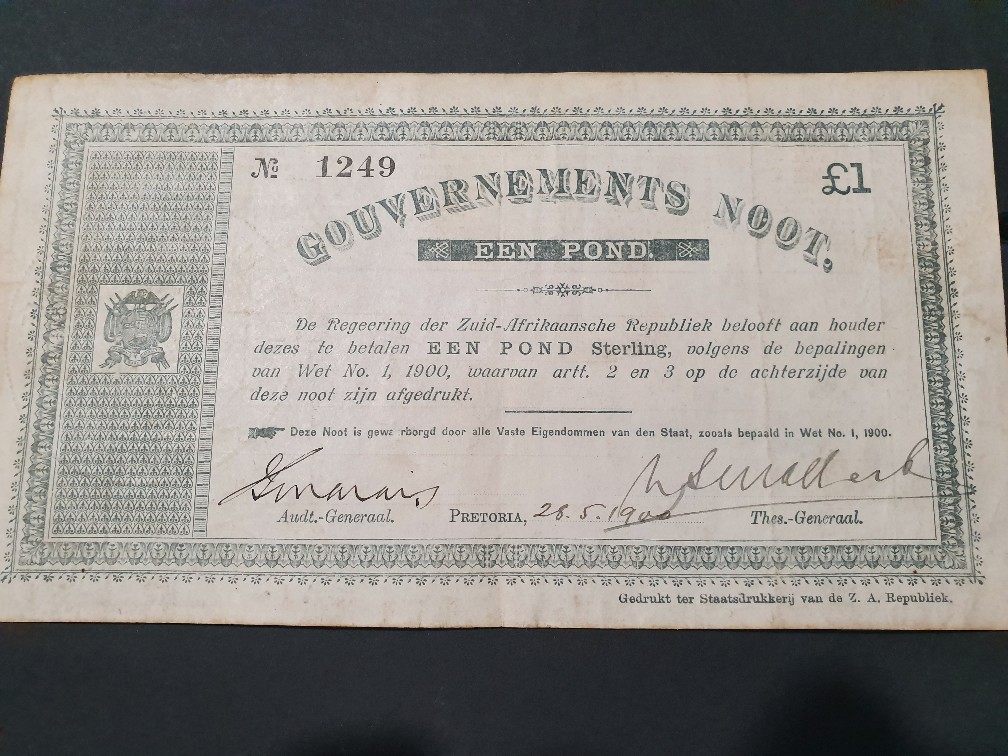 № 1249 £1
GOUVERNEMENTS NOOT,
EEN POND.
De Regeering der Zuid-Afrikaansche Republiek belooft aan houder
dezes te betalen EEN POND Sterling, volgens de bepalingen
van Wet No. 1, 1900, waarvan artt. 2 en 3 op de achterzijde van
deze noot zijn afgedrukt.
Deze Noot is gewa rborgd door alle Vaste Eigendommen van den Staat, zooals bepaald in Wet No. 1, 1900.
Audt.-Generaal. PRETORIA, 28.5.1900 Thes.-Generaal.
Gedrukt ter Staatsdrukkerij van de Z. A. Republiek.